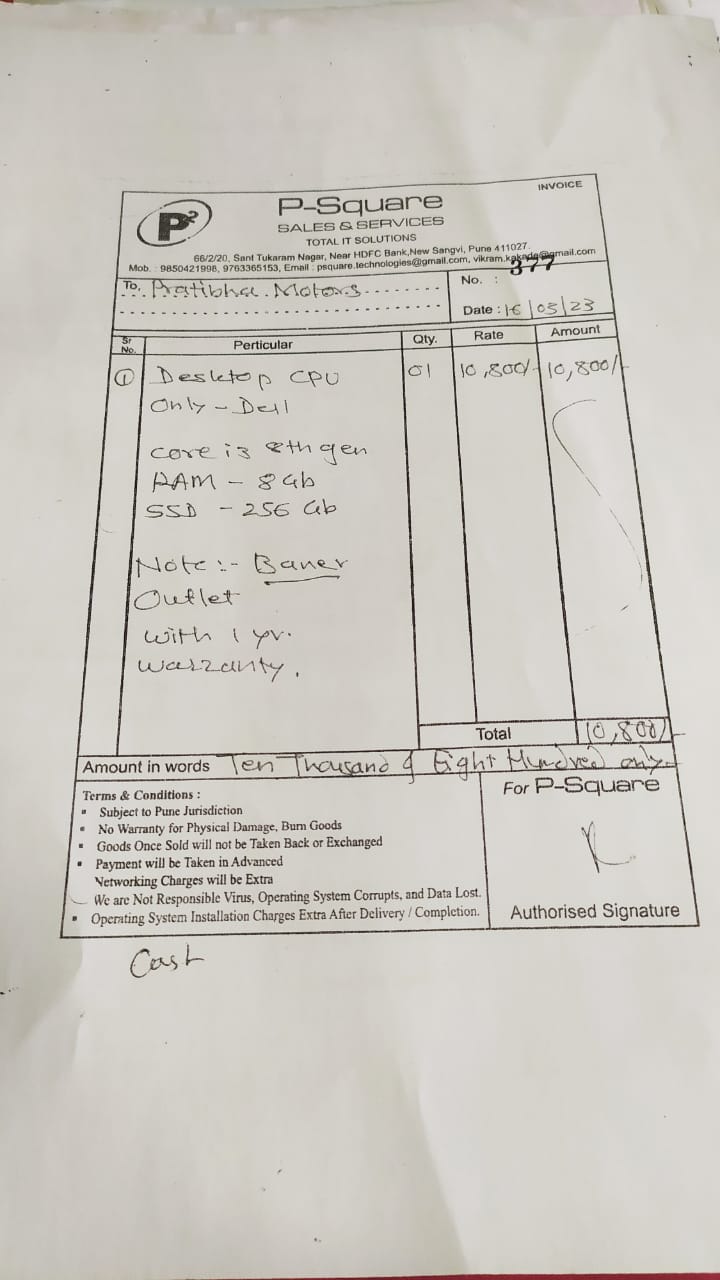 INVOICE
P2
P-Square
SALES & SERVICES
TOTAL IT SOLUTIONS
66/2/20, Sant Tukaram Nagar, Near HDFC Bank,New Sangvi, Pune 411027.
Mob. : 9850421998, 9763365153, Email : psquare.technologies@gmail.com, vikram.kakade@gmail.com
To, Pratibha Motors
No. : 377
Date : 16/03/23
Sr No. Perticular Qty. Rate Amount
1 Desktop CPU 01 10,800/- 10,800/-
Only - Dell
core i3 8th gen
RAM - 8 Gb
SSD - 256 Gb
Note :- Baner
Outlet
With 1 yr.
Warranty.
Total 10,800/-
Amount in words Ten Thousand & Eight Hundred only
Terms & Conditions :
▪ Subject to Pune Jurisdiction
▪ No Warranty for Physical Damage, Burn Goods
▪ Goods Once Sold will not be Taken Back or Exchanged
▪ Payment will be Taken in Advanced
Networking Charges will be Extra
We are Not Responsible Virus, Operating System Corrupts, and Data Lost.
▪ Operating System Installation Charges Extra After Delivery / Completion.
For P-Square
Authorised Signature
Cash